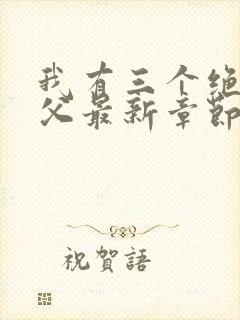 我有三个绝
父最新章節
祝賀語